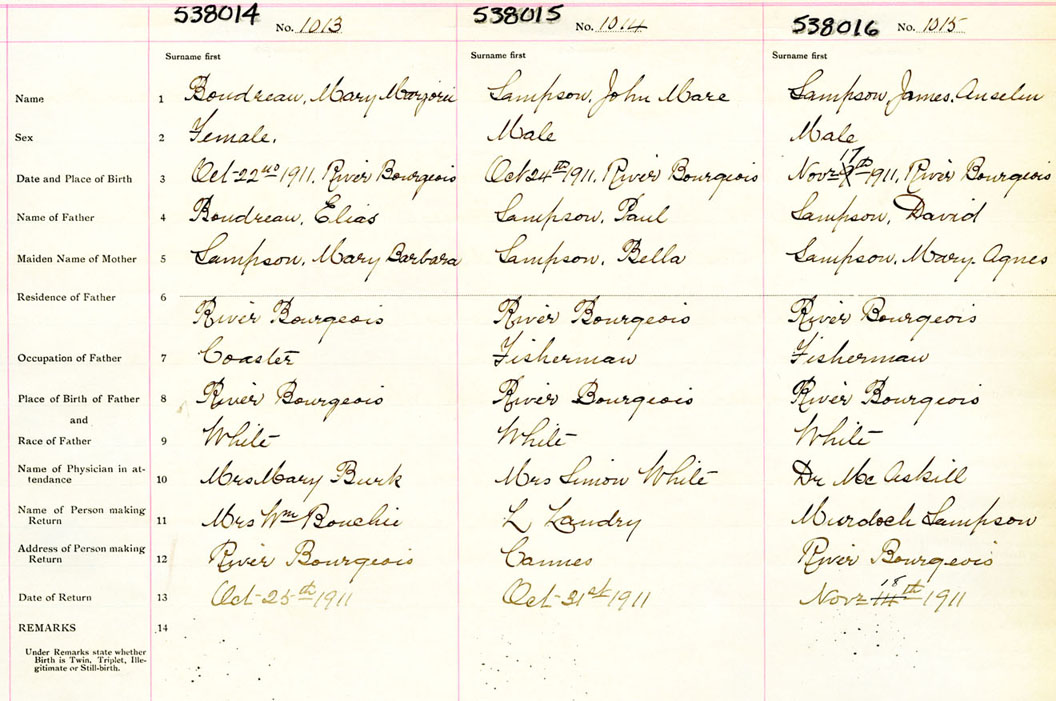 538014 No. 1013 538015 No. 1014 538016 No. 1015
Surname first Surname first Surname first
Name 1 Boudreau, Mary Marjorie Sampson, John Marc Sampson, James. Anselm
Sex 2 Female. Male Male
Date and Place of Birth 3 Oct-22nd 1911. River Bourgeois Oct 24th 1911. River Bourgeois Nov 17th 1911, River Bourgeois
Name of Father 4 Boudreau, Elias Sampson, Paul Sampson, David
Maiden Name of Mother 5 Sampson, Mary Barbara Sampson, Bella Sampson, Mary. Agnes
Residence of Father 6 River Bourgeois River Bourgeois River Bourgeois
Occupation of Father 7 Coaster Fisherman Fisherman
Place of Birth of Father 8 River Bourgeois River Bourgeois River Bourgeois
and
Race of Father 9 White White White
Name of Physician in at-
tendance 10 Mrs Mary Burk Mrs Simon White Dr Mc Askill
Name of Person making
Return 11 Mrs Wm Bouchie L Landry Murdoch Sampson
Address of Person making
Return 12 River Bourgeois Cannes River Bourgeois
Date of Return 13 Oct-25th 1911 Oct-31st 1911 Nov 18th 1911
REMARKS 14
Under Remarks state whether
Birth is Twin, Triplet, Ille-
gitimate or Still-birth.